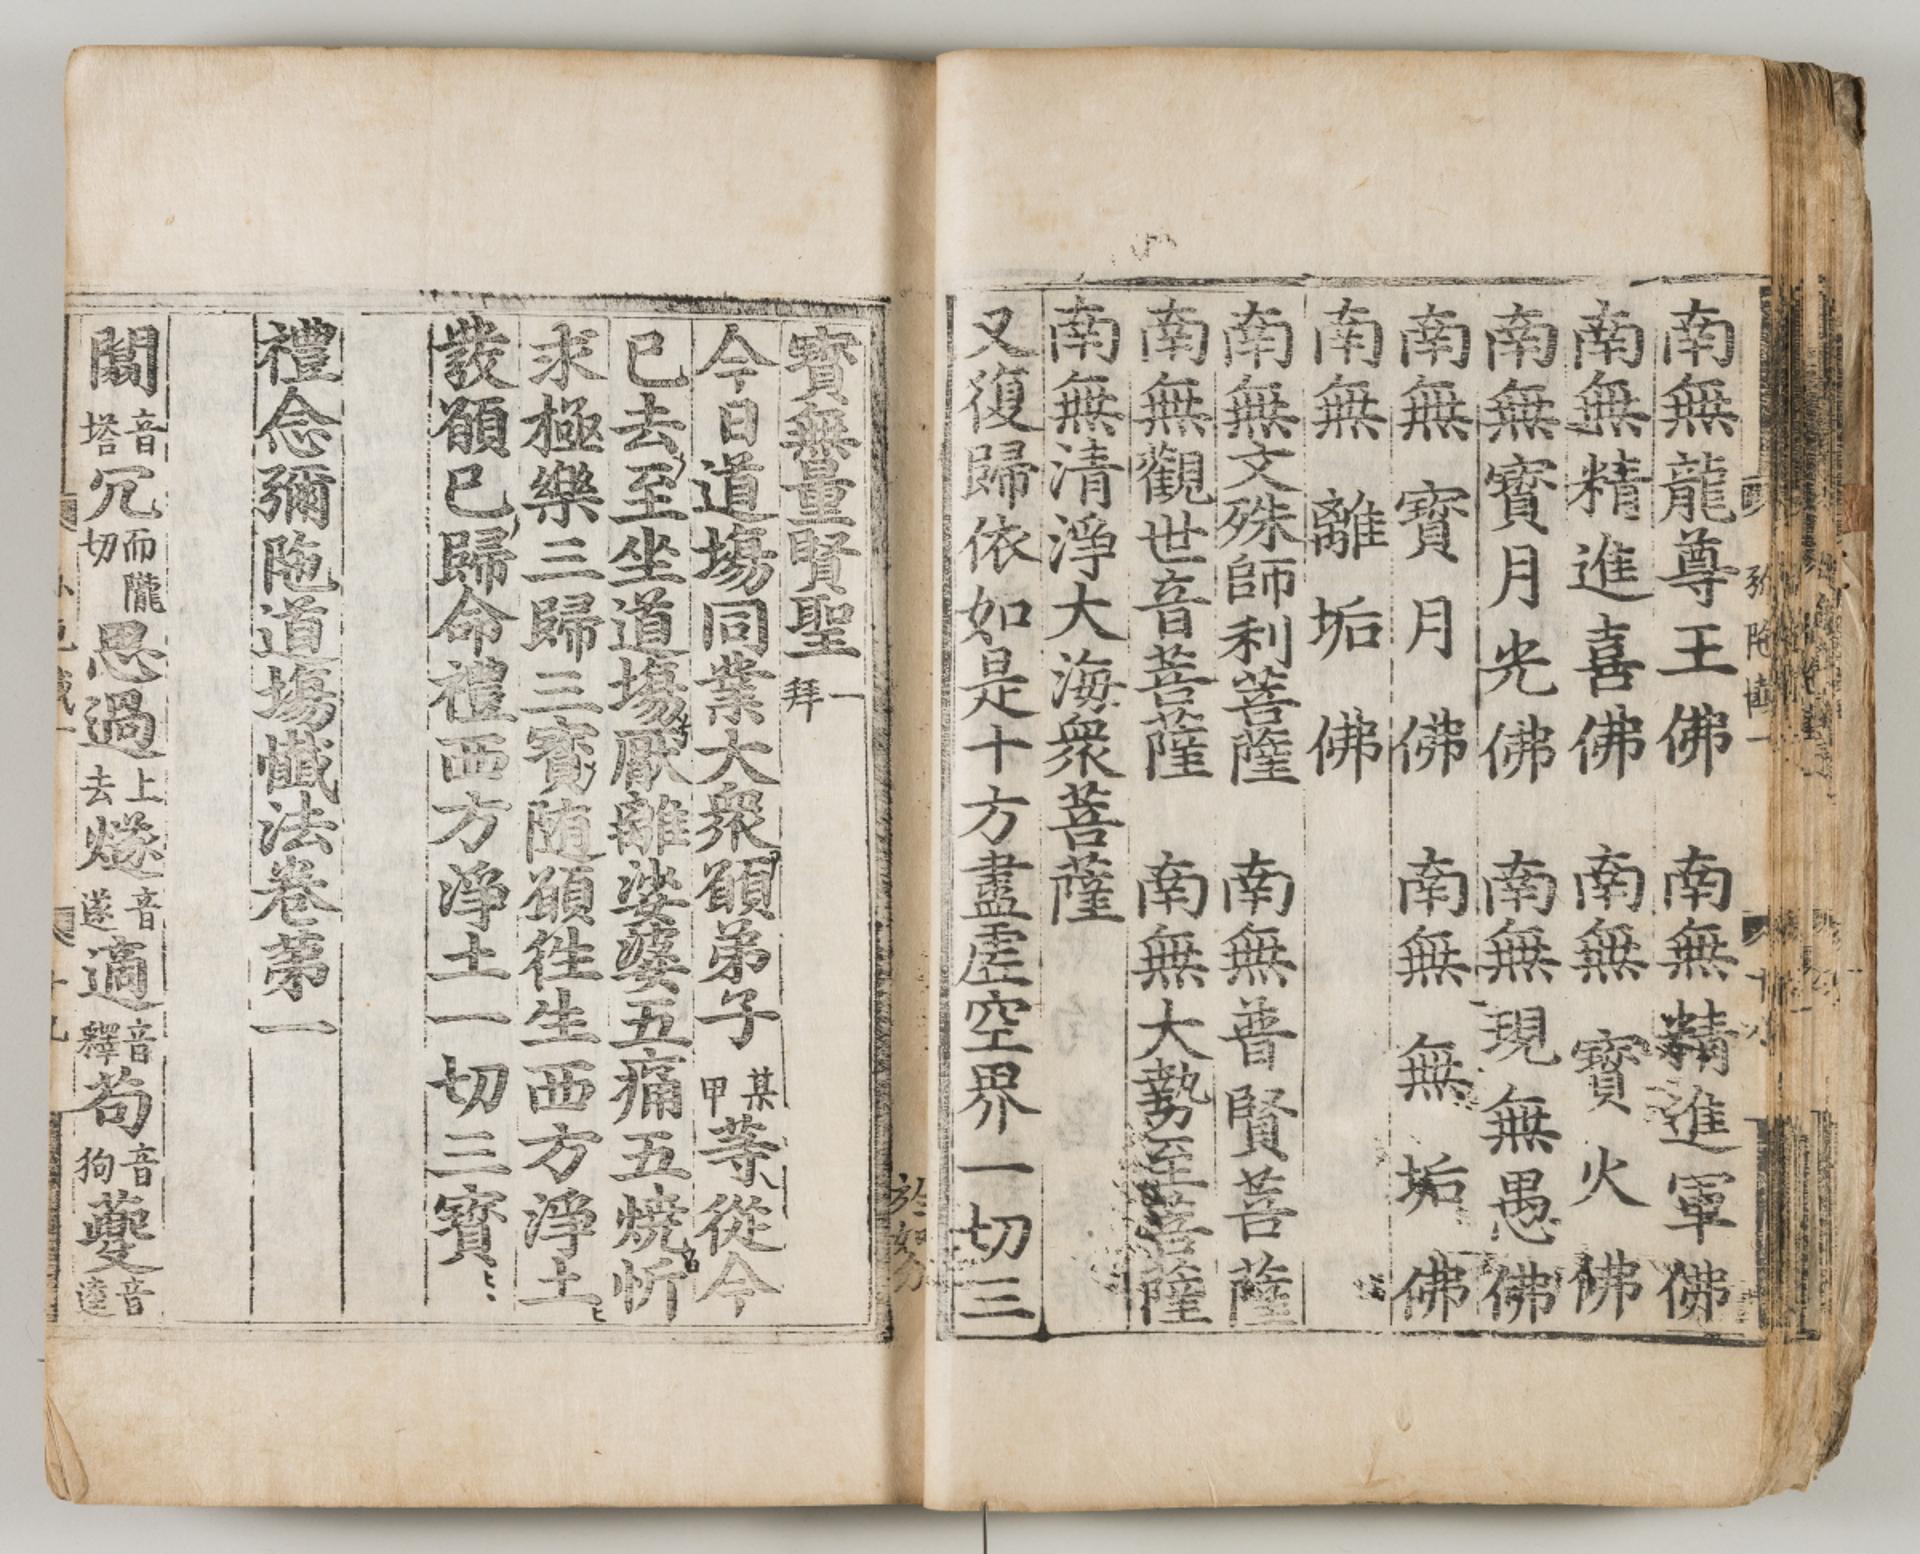 南無龍尊王佛 南無精進軍佛
南無精進喜佛 南無寶火佛
南無寶月光佛 南無現無愚佛
南無寶月佛 南無無垢佛
南無離垢佛
南無文殊師利菩薩 南無普賢菩薩
南無觀世音菩薩 南無大勢至菩薩
南無清淨大海衆菩薩
又復歸依如是十方盡虛空界一切三
寶無量賢聖 一拜
今日道場同業大衆願弟子某甲等從今
已去至坐道場厭離娑婆五痛五燒忻
求極樂三歸三寶随願徃生西方淨土
發願已歸命禮西方淨土一切三寶
禮念彌陁道場懺法卷第一
闒音塔 冗而隴切 愚過上去 燧音遂 適音釋 苟音狗 夔音逵